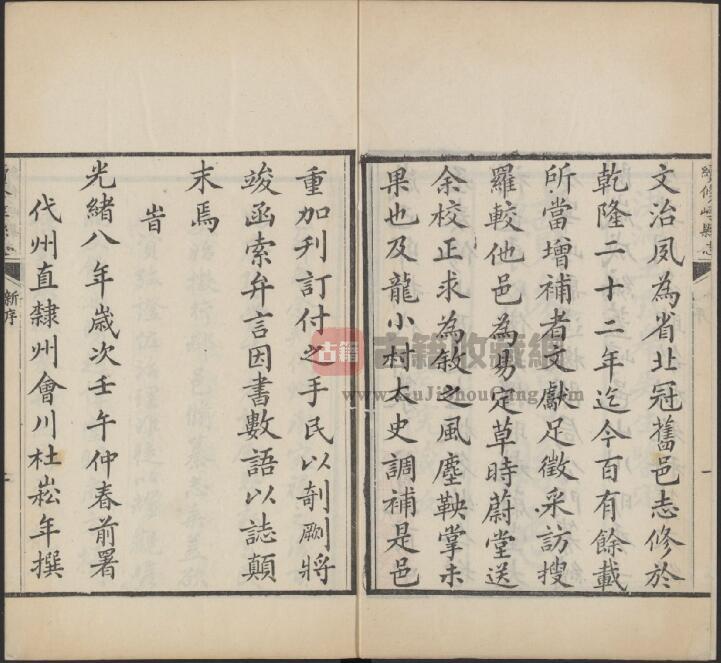 續修崞縣志
文治夙為省北冠舊邑志修於
乾隆二十二年迄今百有餘載
所當增補者文獻足徵采訪搜
羅較他邑為易定草時蔚堂送
余校正求為敘之風塵鞅掌未
果也及龍小村太史調補是邑
重加刊訂付之手民以剞劂將
竣函索弁言因書數語以誌顛
末焉
旹
光緒八年歲次壬午仲春前署
代州直隸州會川杜崧年撰
新序
古籍
古籍收藏網
www.GuJiShouCang.com